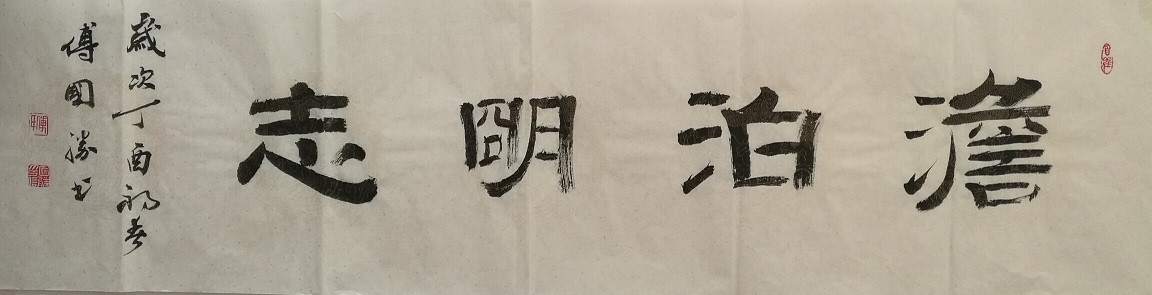 澹泊明志
歲次丁酉初春
傅國勝书